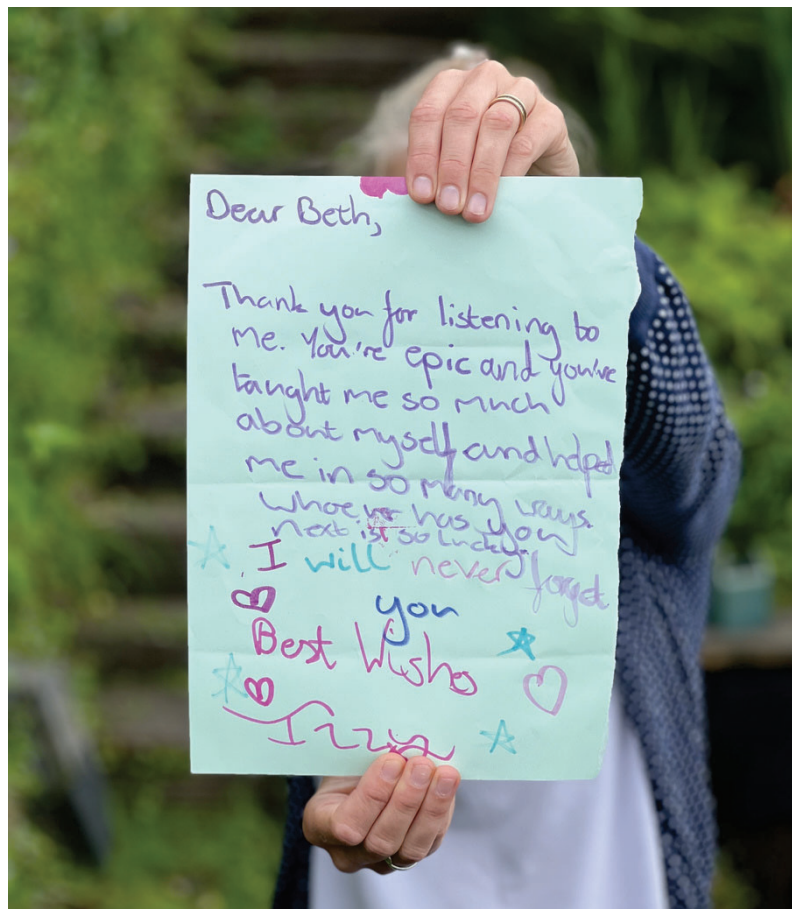 Dear Beth,
Thank you for listening to
me. You're epic and you've
taught me so much
about myself and helped
me in so many ways
whoever has you
next is so lucky.
I will never forget
you
Best Wishes
Izzie